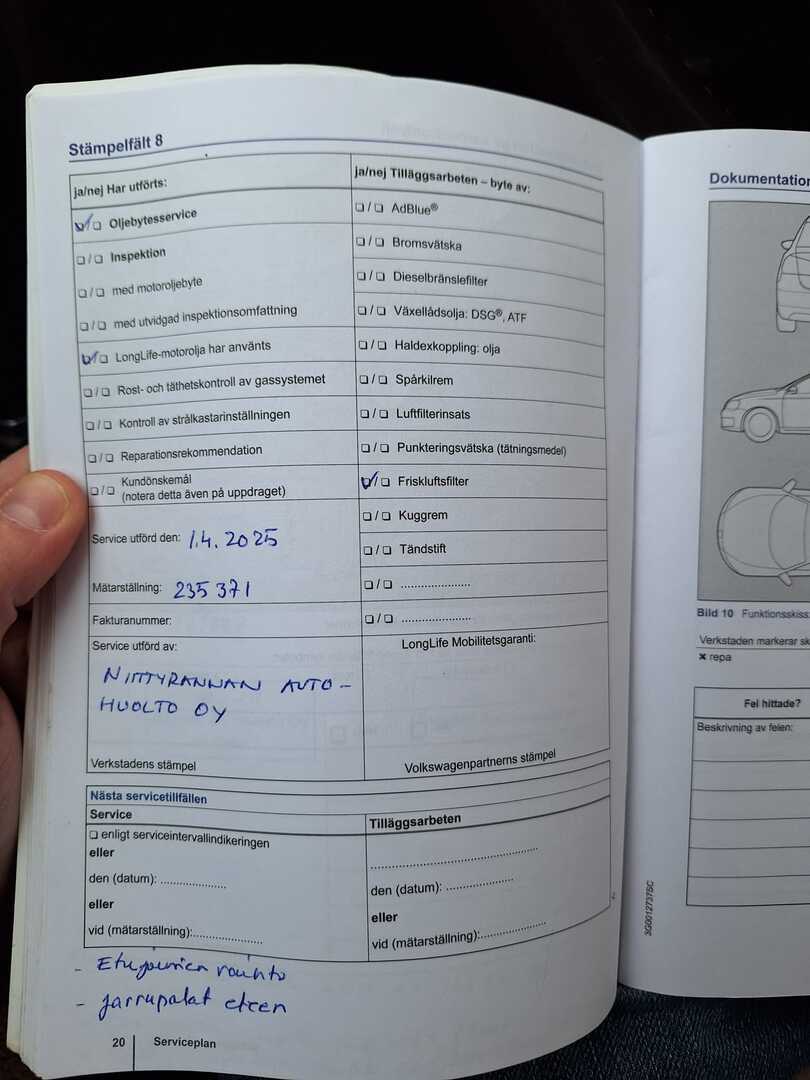 Stämpelfält 8
ja/nej Har utförts:
☑/❏ Oljebytesservice
❏/❏ Inspektion
❏/❏ med motoroljebyte
❏/❏ med utvidgad inspektionsomfattning
☑/❏ LongLife-motorolja har använts
❏/❏ Rost- och täthetskontroll av gassystemet
❏/❏ Kontroll av strålkastarinställningen
❏/❏ Reparationsrekommendation
❏/❏ Kundönskemål
(notera detta även på uppdraget)
Service utförd den: 1.4.2025
Mätarställning: 235 371
Fakturanummer:
Service utförd av:
NIITTYRANNAN AUTO-
HUOLTO OY
Verkstadens stämpel
ja/nej Tilläggsarbeten – byte av:
❏/❏ AdBlue®
❏/❏ Bromsvätska
❏/❏ Dieselbränslefilter
❏/❏ Växellådsolja: DSG®, ATF
❏/❏ Haldexkoppling: olja
❏/❏ Spårkilrem
❏/❏ Luftfilterinsats
❏/❏ Punkteringsvätska (tätningsmedel)
☑/❏ Friskluftsfilter
❏/❏ Kuggrem
❏/❏ Tändstift
❏/❏ .....................
❏/❏ .....................
LongLife Mobilitetsgaranti:
Volkswagenpartnerns stämpel
Nästa servicetillfällen
Service
❏ enligt serviceintervallindikeringen
eller
den (datum): ....................
eller
vid (mätarställning):.....................
Tilläggsarbeten
..................................................
den (datum): ....................
eller
vid (mätarställning):....................
- Etujousien vaihto
- jarrupalat eteen
20 Serviceplan
Dokumentation
Bild 10 Funktionsskiss:
Verkstaden markerar sk
✖ repa
Fel hittade?
Beskrivning av felen:
3G0012737SC